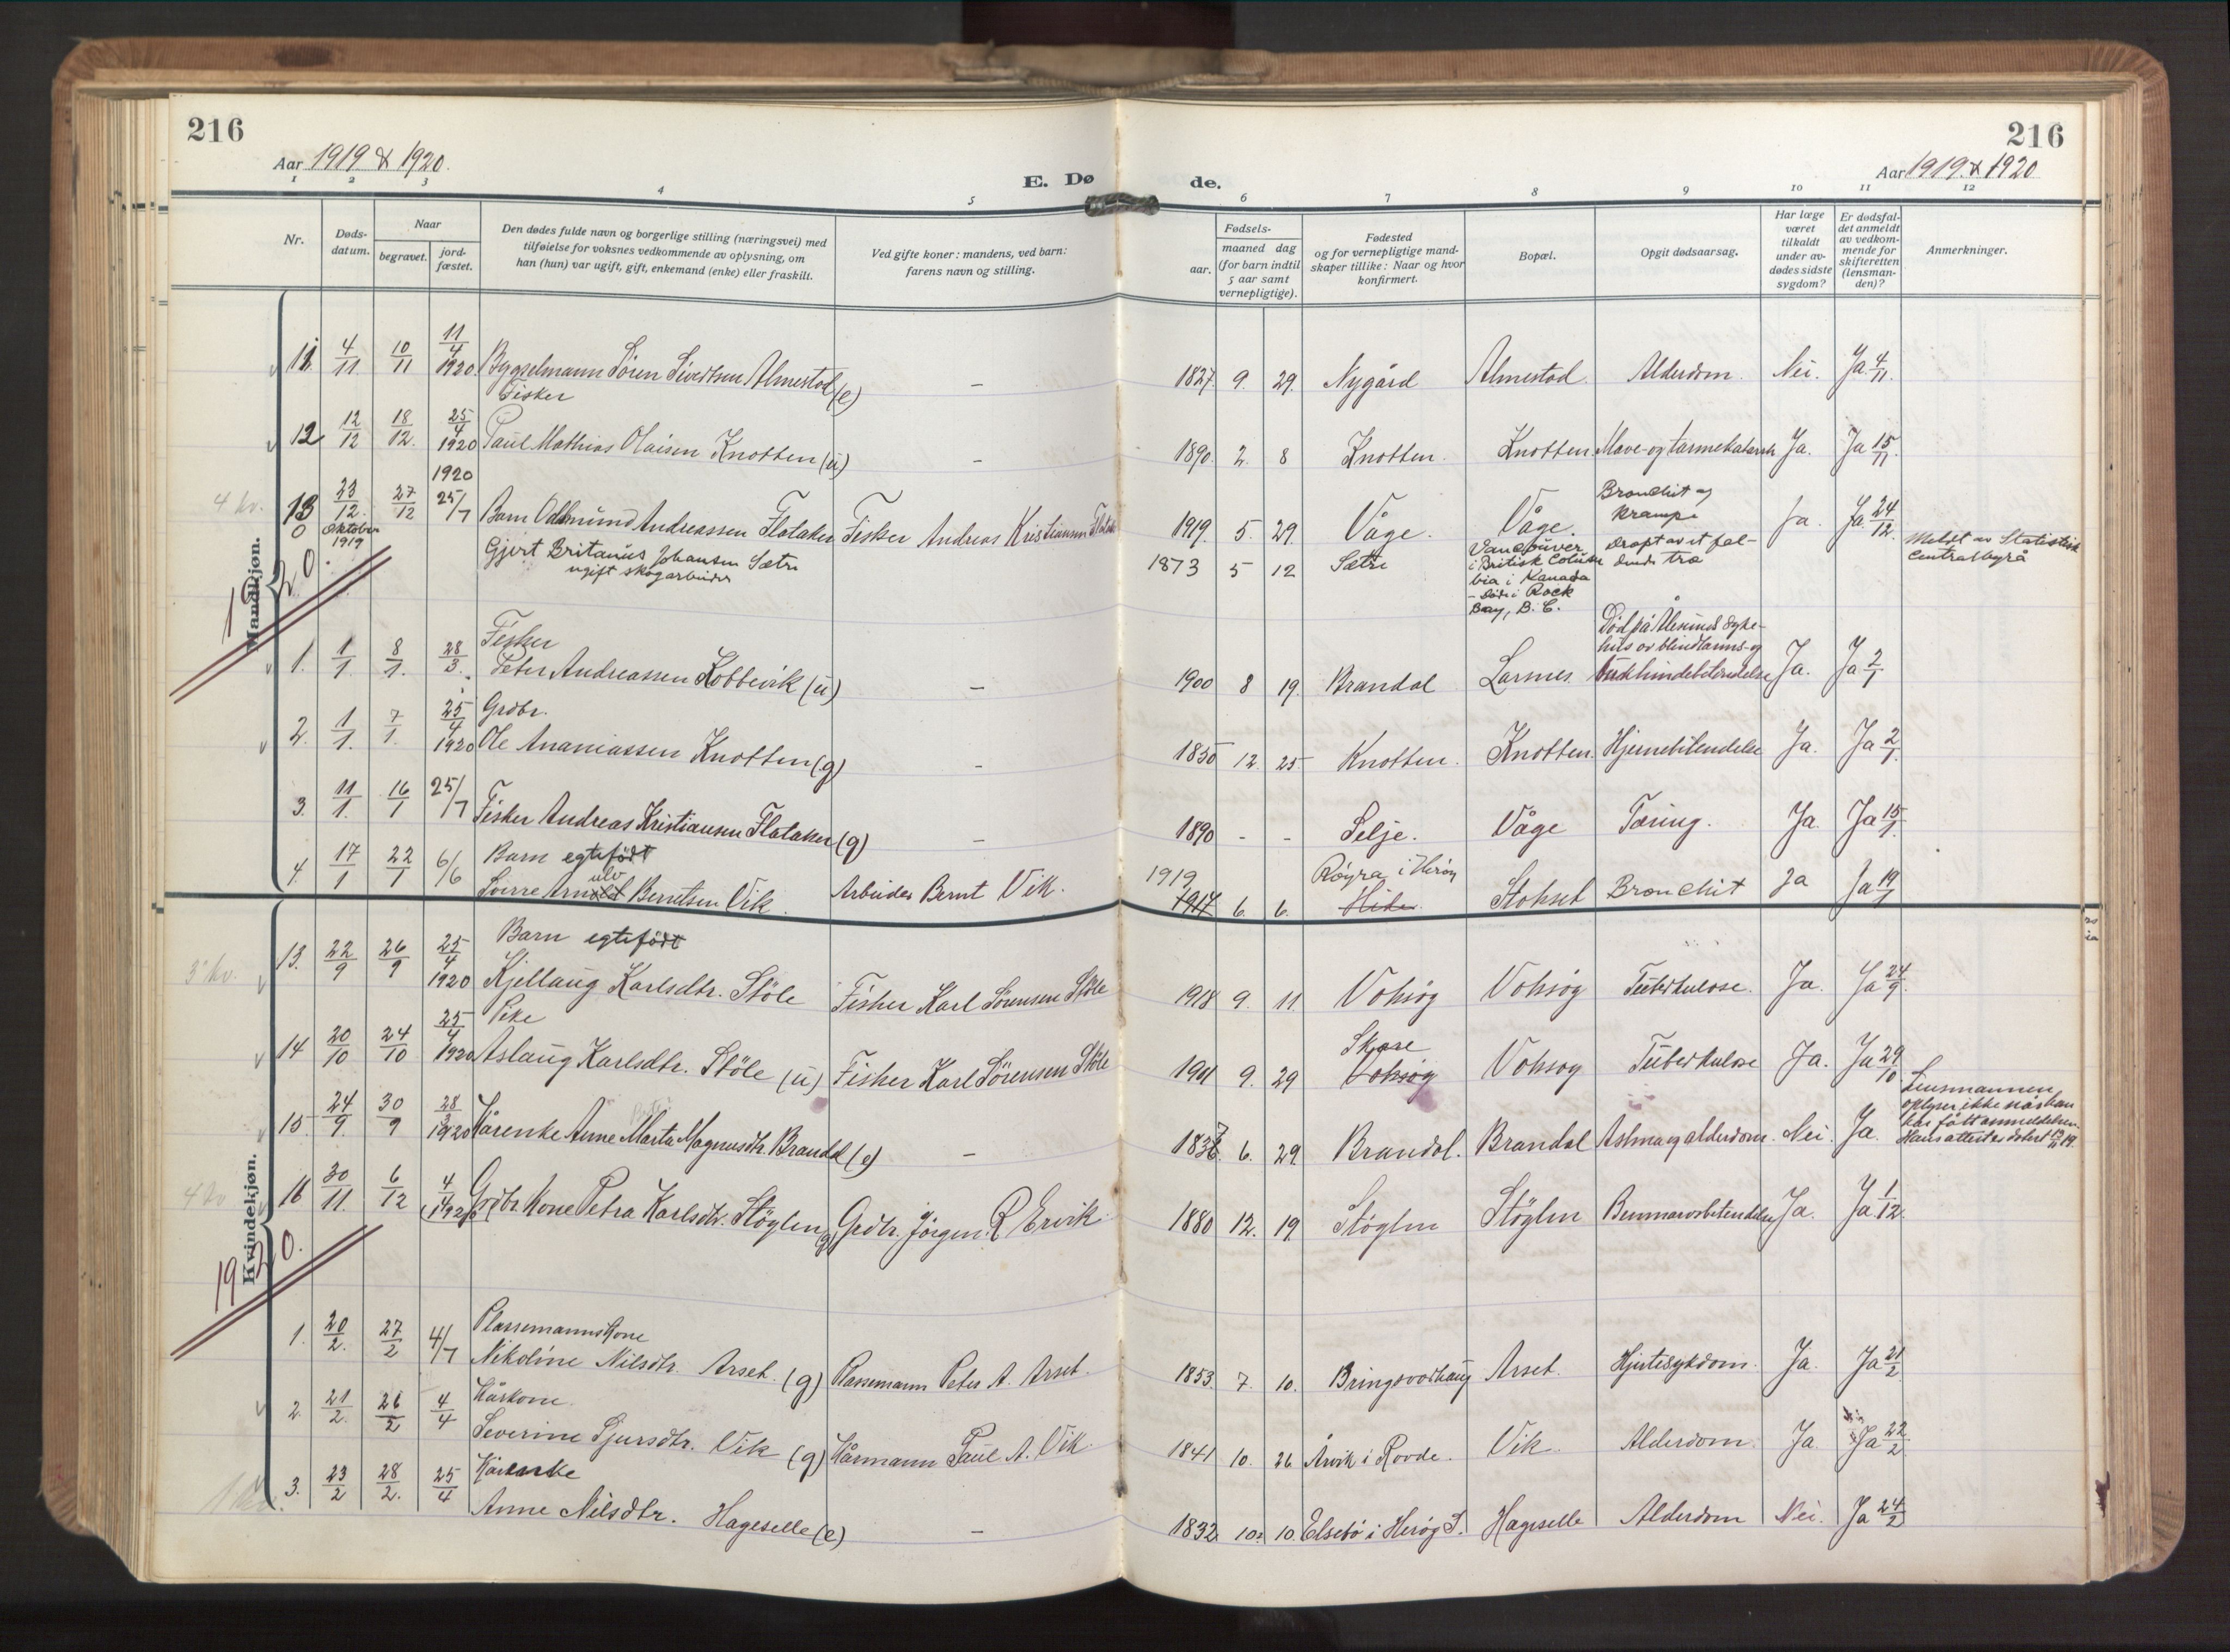 216
216
Aar 1919 & 1920.
E. Dø de.
Aar 1919 & 1920
1 2 3 4 5 6 7 8 9 10 11 12
Nr.
Døds-datum.
Naar
begravet.
jord-fæstet.
Den dødes fulde navn og borgerlige stilling (næringsvei) med
tilføielse for voksnes vedkommende av oplysning, om
han (hun) var ugift, gift, enkemand (enke) eller fraskilt.
Ved gifte koner: mandens, ved barn:
farens navn og stilling.
Fødsels-
aar.
maaned dag
(for barn indtil
5 aar samt
vernepligtige).
Fødested
og for vernepligtige mand-
skaper tillike: Naar og hvor
konfirmert.
Bopæl.
Opgit dødsaarsag.
Har læge
været
tilkaldt
under av-
dødes sidste
sygdom?
Er dødsfal-
det anmeldt
av vedkom-
mende for
skifteretten
(lensman-
den)?
Anmerkninger.
Mandkjøn.
11. 4/11 10/11 11/4 1920 Bygselmann Søren Sivertsen Almestad (e) – 1827. 9. 29. Nygård Almestad Alderdom. Nei. Ja 4/11.
Fisker
12 12/12 18/12. 25/4 1920 Paul Mathias Olaisen Knotten (u) – 1890. 2. 8 Knotten. Knotten. Mave- og tarmekatarrh Ja. Ja 15/11.
4 kv. 13 23/12. 27/12 1920 25/7 Barn Oddmund Andreassen Flataker Fisker Andreas Kristiansen Flataker 1919. 5. 29. Våge. Våge. Bronchit og krampe Ja. Ja 24/12.
0 Oktober 1919 Gjert Britanus Johansen Sætre
ugift skogarbeider
1873 5 12 Sætre
Vancouver
i Britisk Colum
bia i Kanada
– Døde i Rock
Bay, B. C.
Drept av et fal-
dende træ
Meldt av Statistisk
Centralbyrå
1920.
1. 1/1. 8/1. 28/3. Fisker
Peter Andreassen Kobbevik (u) – 1900 8 19. Brandal Larsnes.
Død på Ålesunds syke-
hus av blindtarms- og
bukhindebetendelse Ja. Ja 2/1
2. 1/1. 7/1. 25/4 1920 Grdbr.
Ole Ananiassen Knotten (g) – 1855 12. 25. Knotten. Knotten. Hjernebetendelse Ja. Ja 2/1.
3. 11/1. 16/1 25/7 Fisker Andreas Kristiansen Flataker (g) – 1890 - - Selje. Våge Tæring. Ja Ja 15/1.
4. 17/1 22/1 6/6 Barn egtefødt
Sverre Arnulv Berntsen Vik. Arbeider Bernt Vik. 1919 1917 6. 6. Røyra i Herøy Stokset Bronchit Ja Ja 19/1
Kvindekjøn.
3 kv. 13. 22/9 26/9 25/4 1920 Barn egtefødt
Kjellaug Karlsdtr. Støle Fisker Karl Sørensen Støle 1918 9. 11. Voksøy Voksøy Tuberkulose. Ja. Ja 24/9.
14 20/10 24/10 25/4 1920 Pike
Aslaug Karlsdtr. Støle (u) Fisker Karl Sørensen Støle 1901 9. 29 Skare Voksøy Voksøy Tuberkulose Ja. Ja 29/10
15 24/9. 30/9 28/3 1920 Kårenke Anne Marta Magnusdtr. Brandal (e) – 1837. 6. 29 Brandal. Brandal Astma og alderdom. Nei. Ja.
Lensmannen
oplyser ikke når han
har fått anmeldelsen.
Hans attest er datert 13/11 19.
4 kv 16 30/11. 6/12 4/4 1920 Grdbr kone Petra Karlsdtr. Støylen (g) Grdbr. Jörgen R Ervik 1880 12. 19. Støylen Støylen Ja. Ja 1/12.
1920.
1. 20/2. 27/2 4/7 Plassemannskone
Nikoline Nilsdtr. Arset. (g) Plassemann Peter A. Arset. 1853. 7. 10. Bringsvorhaug Arset. Hjertesykdom. Ja. Ja 21/2
2. 21/2. 26/2 4/4 Kårkone.
Severine Sjursdtr. Vik (g) Kårmann Paul A. Vik. 1841 10. 26 Årvik i Rovde. Vik. Alderdom. Ja. Ja 22/2.
1 kv. 3. 23/2 28/2. 25/4 Kårenke
Anne Nilsdtr. Hageselle (e) – 1832. 10. 10. Elsebø i Herøy S. Hageselle Alderdom Nei. Ja 24/2